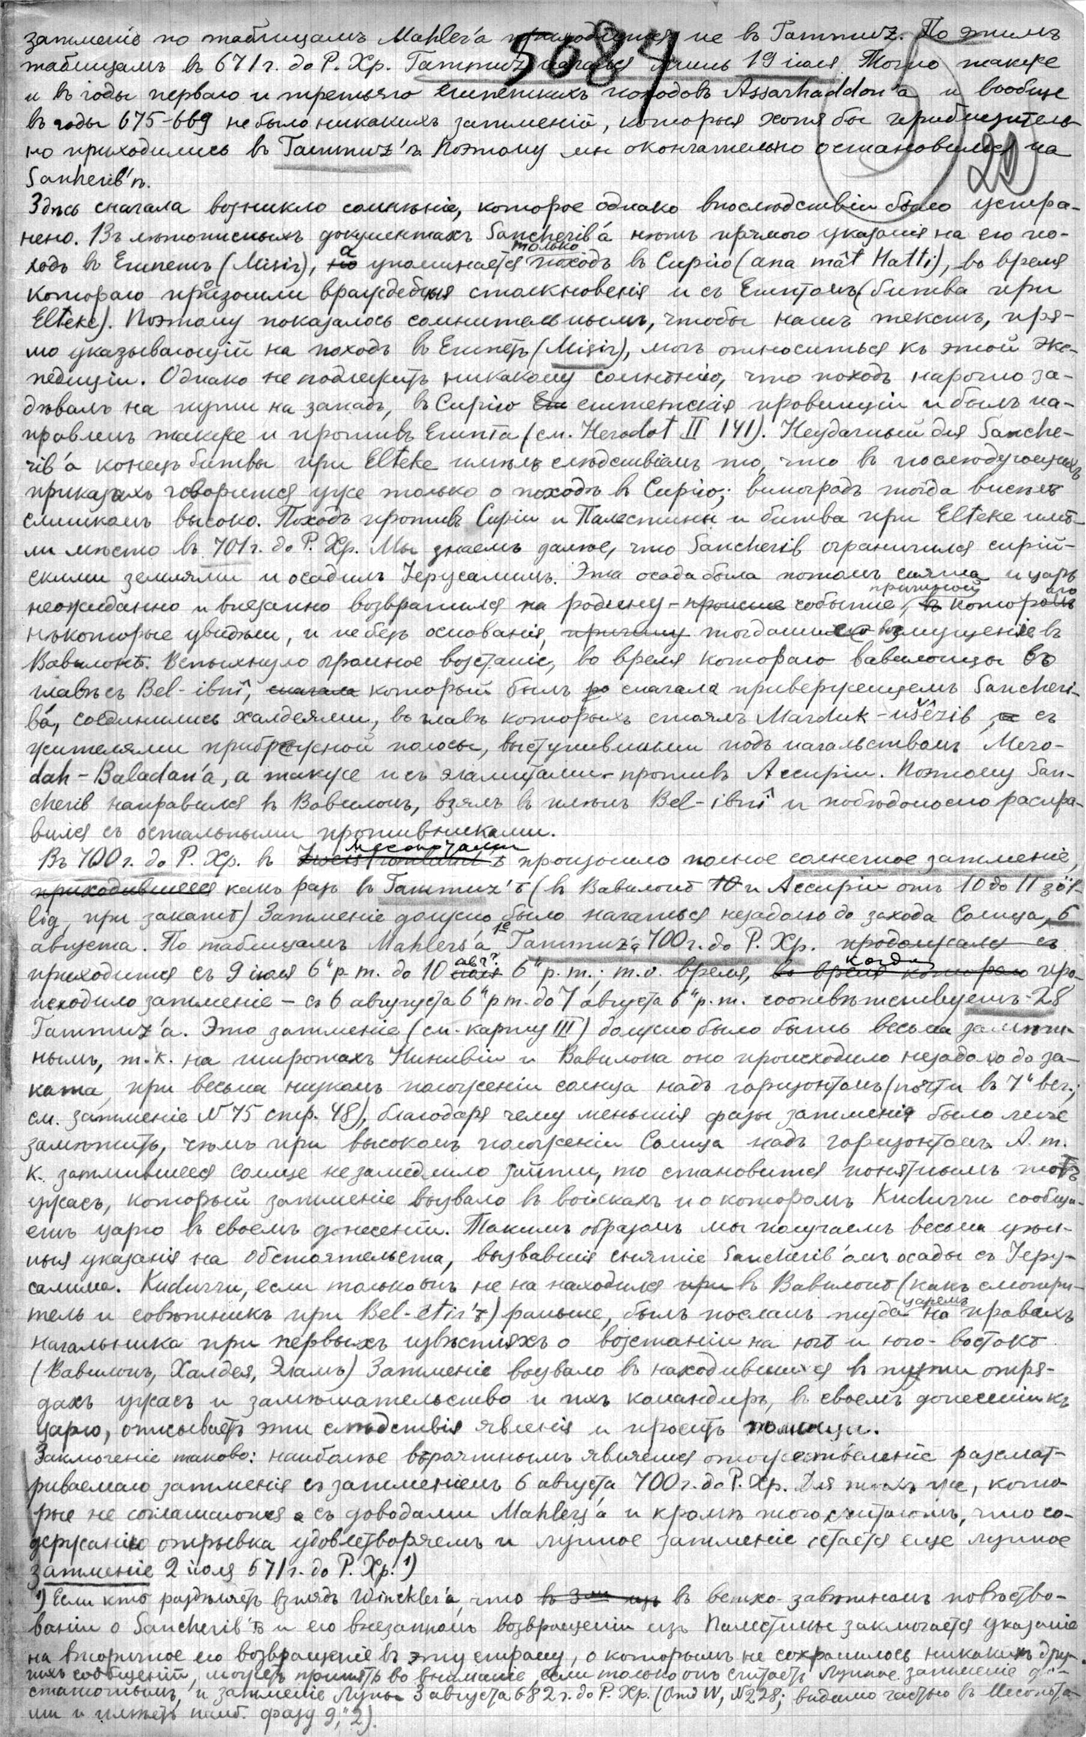 затменіе по таблицамъ Mahler'а приходится не в Tammuz. По этимъ
таблицамъ в 671 г. до Р. Хр. Tammuz начался лишь 19 іюля. Точно также
и въ годы перваго и третьяго египетскихъ походовъ Assarhaddon'а и вообще
въ годы 675-669 не было никакихъ затменій, которыя хотя бы приблизитель-
но приходились в Tammuz'ѣ. Поэтому мы окончательно остановились на
Sanherib'ѣ.
5087
22
Здѣсь сначала возникло сомнѣніе, которое однако впослѣдствіи было устра-
нено. Въ лѣтописныхъ документахъ Sancherib'а нѣтъ прямого указанія на его по-
ходъ в Египетъ (Misir), а упоминается только походъ в Сирію (ana mât Hatti), во время
котораго произошли враждебныя столкновенія и съ Египтомъ (битва при
Elteke). Поэтому показалось сомнительнымъ, чтобы нашъ текстъ, пря-
мо указывающій на походъ в Египетъ (Misir), могъ относиться къ этой экс-
педиціи. Однако не подлежитъ никакому сомнѣнію, что походъ нарочно за-
дѣвалъ на пути на западъ, в Сирію египетскія провинціи и былъ на-
правленъ также и противъ Египта (см. Herodot II 141). Неудачный для Sanche-
rib'а конецъ битвы при Elteke имѣлъ слѣдствіемъ то, что в послѣдующихъ
приказахъ говорится уже только о походѣ в Сирію; виноградъ тогда виситъ
слишкомъ высоко. Походъ противъ Сиріи и Палестины и битва при Elteke имѣ-
ли мѣсто в 701 г. до Р. Хр. Мы знаемъ далѣе, что Sancherib ограничился сирій-
скими землями и осадилъ Іерусалимъ. Эта осада была потомъ снята и царь
неожиданно и внезапно возвратился на родину - событіе, причиной котораго
нѣкоторые увидѣли, и не безъ основанія, тогдашнее возмущеніе в
Вавилонѣ. Вспыхнуло огромное возстаніе, во время котораго вавилоняне во
главѣ съ Bel-ibnî, который былъ сначала приверженцемъ Sancheri-
b'а, соединились халдеями, во главѣ которыхъ стоялъ Marduk-ušêzib, съ
жителями прибрежной полосы, выступившими подъ начальствомъ Mero-
dah-Baladan'а, а также и съ эламитами противъ Ассиріи. Поэтому San-
cherib направился в Вавилонъ, взялъ в плѣнъ Bel-ibnî и побѣдоносно распра-
вился съ остальными противниками.
Въ 700 г. до Р. Хр. в Месопотаміи произошло полное солнечное затменіе,
приходившееся какъ разъ в Tammuz'ѣ (в Вавилонѣ и Ассиріи отъ 10 до 11 zöl-
lig, при закатѣ) Затменіе должно было начаться незадолго до захода Солнца, 6
августа. По таблицамъ Mahlers'а 1е Tammuz'а 700 г. до Р. Хр.
приходится съ 9 іюля 6ч р.m. до 10 авг? 6ч р.m.; т.о. время, когда про-
исходило затменіе - съ 6 августа 6ч р.m. до 7 августа 6ч р.m. соотвѣтствуетъ 28
Tammuz'а. Это затменіе (см. карту III) должно было быть весьма замѣт-
нымъ, т.к. на широтахъ Ниневіи и Вавилона оно происходило незадолго до за-
ката, при весьма низкомъ положеніи солнца надъ горизонтомъ (почти в 7ч веч.;
см. затменіе N 75 стр. 48), благодаря чему меньшія фазы затменія было легче
замѣтить, чѣмъ при высокомъ положеніи Солнца надъ горизонтомъ. А т.
к. затмившееся солнце незамедлило зайти, то становится понятнымъ тотъ
ужасъ, который затменіе вызвало в войскахъ и о которомъ Kudurru сообща-
етъ царю в своемъ донесеніи. Такимъ образомъ мы получаемъ весьма цѣн-
ныя указанія на обстоятельства, вызвавшія снятіе Sancherib'омъ осады съ Іеру-
салима. Kudurru, если только онъ не на находился в Вавилонѣ (какъ смотри-
тель и совѣтникъ при Bel-etir'ѣ) раньше, былъ посланъ туда царемъ на правахъ
начальника при первыхъ извѣстіяхъ о возстаніи на югѣ и юго-востокѣ
(Вавилонъ, Халдея, Эламъ) Затменіе вызвало в находившихся в пути отря-
дахъ ужасъ и замѣшательство и ихъ командиръ, в своемъ донесеніи къ
царю, описываетъ эти слѣдствія явленія и проситъ помощи.
Заключеніе таково: наиболѣе вѣроятнымъ является отождествленіе разсмат-
риваемаго затменія съ затменіемъ 6 августа 700 г. до Р. Хр. Для тѣхъ же, кото-
рые не соглашаются съ доводами Mahlers'а и кромѣ того считаютъ, что со-
держанію отрывка удовлетворяетъ и лунное затменіе остается еще лунное
затменіе 2 іюля 671 г. до Р. Хр. ¹)
¹) Если кто раздѣляетъ взглядъ Winckler'а, что в ветхо-завѣтномъ повѣство-
ваніи о Sancherib'ѣ и его внезапномъ возвращеніи изъ Палестины заключается указаніе
на вторичное его возвращеніе в эту страну, о которомъ не сохранилось никакихъ дру-
гихъ сообщеній, можетъ принять во вниманіе если только онъ считаетъ лунное затменіе до-
статочнымъ, и затменіе Луны 3 августа 682 г. до Р. Хр. (N228; видимо частью в Месопота-
міи и имѣетъ наиб. фазу 9,"2).